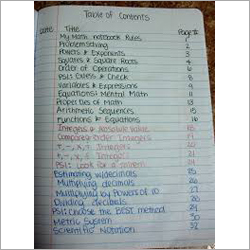 Table of Contents
Date Title Page #
My Math Notebook Rules 1
Problem Solving 2
Powers & Exponents 3
Squares & Square Roots 4
Order of Operations 6
PSI: Guess & Check 8
Variables & Expressions 9
Equations: Mental Math 11
Properties of Math 13
Arithmetic Sequences 15
Functions & Equations 16
Integers & Absolute Value 18
Comparing + Order Integers
+, -, x, ÷ Integers 20
+, -, x, ÷ Integers 21
PSI: Look for a Pattern
Estimating w/decimals 25
Multiplying decimals 26
Multiplying by Powers of 10 27
Dividing decimals 28
PSI: Choose the BEST method 29
Metric System 30
Scientific Notation 32